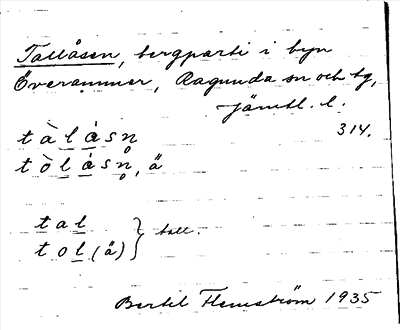 Tallåsen, bergparti i byn
Överammer, Ragunda sn och tg,
Jämtl. l.
314.
tàlåsn̥
tòlåsn̥, ä
tal } tall.
tol (ä)
Bertil Flemström 1935